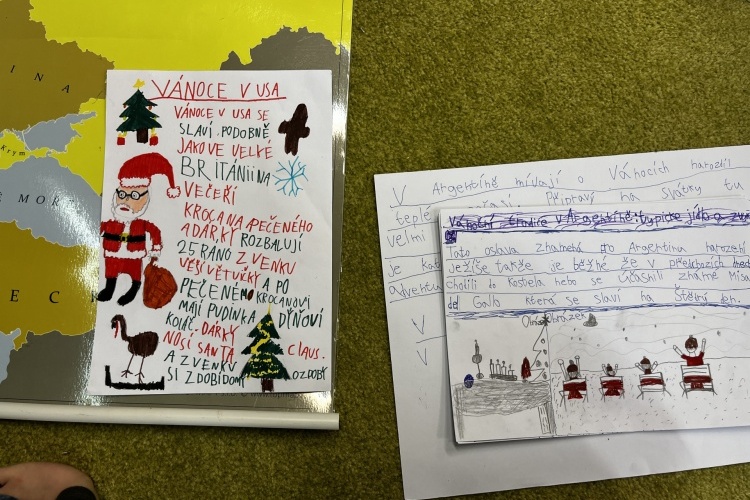 I N A
Krym
MOŘ
E C K
VÁNOCE V USA
VÁNOCE V USA SE
SLAVÍ PODOBNĚ
JAKO VE VELKÉ
BRITÁNII NA
VEČEŘI
KROCANA PEČENÉHO
A DÁRKY ROZBALUJÍ
25 RÁNO Z VENKU
VĚSÍ VĚTVIČKY A PO
PEČENÉM KROCANOVI
MAJÍ PUDINK A DÝŇOVÍ
KOLÁČ. DÁRKY
NOSÍ SANTA CLAUS.
A Z VENKU
SI ZDOBÍ DOMY OZDOBY
V Argentíně mívají o Vánocích
teplé
velmi
je
adventu
V
V
Připravy na svátky tu
Vánoční tradice v Argentíně
Tato oslava znamená pro Argentinu narození
Ježíše takže je běžné že v předchozích
chodili do kostela nebo se účasnili známé Misa
del Gallo která se slaví na Štědrý den.
Obrázek